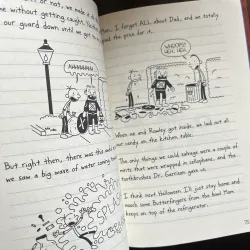 or not, we made it
without getting caught.
our guard down until we got to
AAAHHHHH!
But right then, there was this
we saw a big wave of water coming
I forget ALL about Dad, and we totally
paid the price for it.
WHOOPS!
HEH, HEH.
When me and Rowley got inside, we laid out all
our candy on the kitchen table.
The only things we could salvage were a couple of
mints that were wrapped in cellophane, and the
toothbrushes Dr. Garrison gave us.
I think next Halloween I'll just stay home and
mooch some Butterfingers from the bowl Mom
keeps on top of the refrigerator.